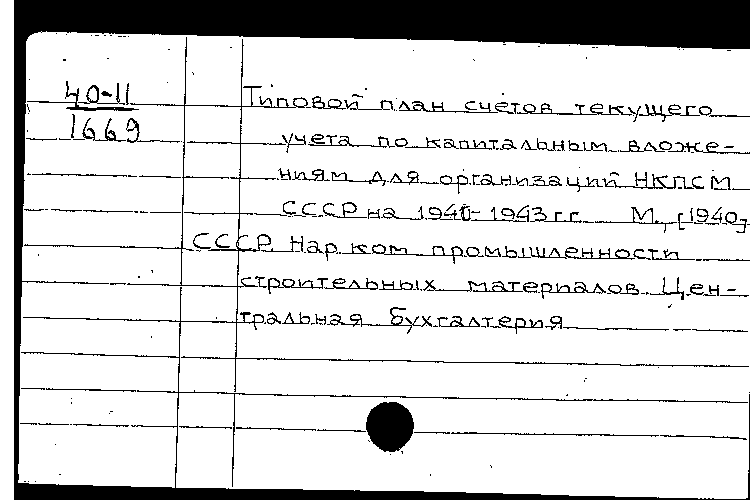 40-11
1669
Типовой план счетов текущего
учета по капитальным вложе-
ниям для организаций НКПСМ
СССР на 1940-1943 г.г. М., [1940]
СССР. Нар. ком. промышленности
строительных материалов. Цен-
тральная бухгалтерия